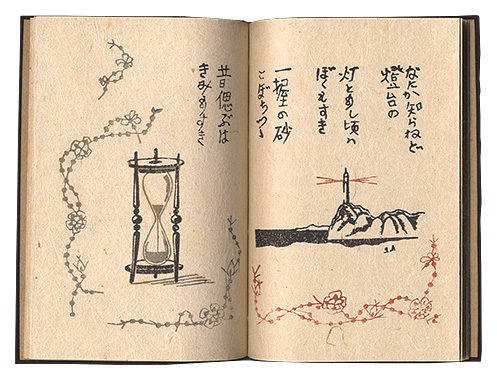 なにか知らねど
燈台の
灯ともし頃は
ぼくもすき
一握の砂
昔偲ぶは
きみもすき